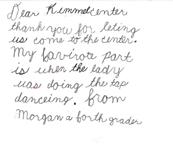 Dear Kimmelcenter
thank you for leting
us come to the center.
My favirote part
is when the lady
was doing the tap
danceing. from
Morgan a forth grader